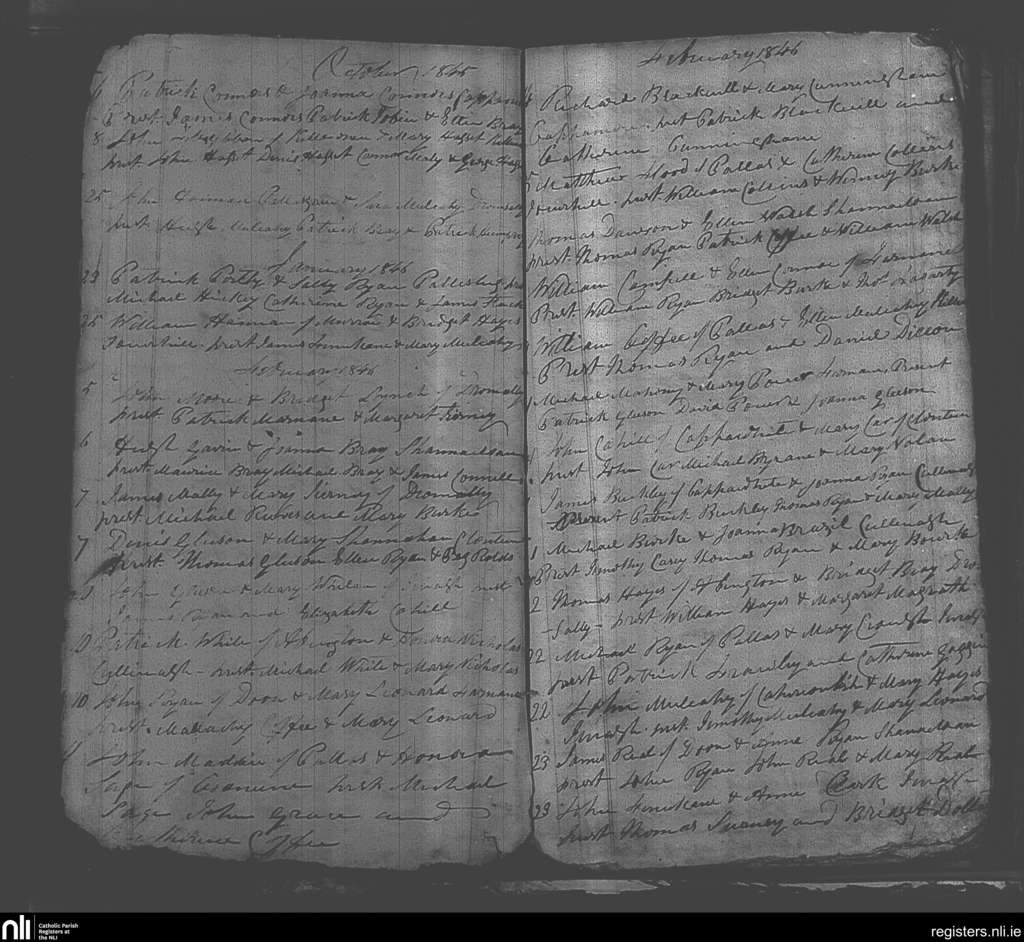 October 1845
6 Patrick Connors & Joanna Connors Cappa
Prest James Connors Patrick Tobin & Ellen Bray
8 John of & Mary Hasset
prest John Hasset Denis Hasset Connor Maly & George
25 John Hannan & Sara Mulcahy Dromsally
prest Hugh Mulcahy Patrick Bray & Patrick
January 1846
23 Patrick Portly & Sally Ryan Pallasbeg prest
Michael Hickey Catherine Ryan & James
25 William Hannan of Murroe & Bridget Hayes
Towerhill - prest James Linnihane & Mary Mulcahy
February 1846
5 John Moore & Bridget Lynch of Dromsally
prest Patrick Marnane & Margaret Tierney
6 Hugh Gavin & Joanna Bray Shannacloon
prest Maurice Bray Michael Bray & James Connell
7 James Mally & Mary Tierney of Dromsally
prest Michael and Mary Burke
7 Denis Gleeson & Mary Shannahan Cloutin
prest Thomas Gleeson Ellen Ryan & Peg Rolds
John & Mary Whelan of Tineagh prest
Ryan and Elizabeth Cahill
10 Patk M. White of Abington & Honora Nicholas
Cullenagh - prest Michael White & Mary Nicholas
10 John Ryan of Doon & Mary Leonard Farmane
prest - Malachy Coffee & Mary Leonard
John Madden of Pallas & Honora
Sage of prest Michael
Sage John Grace and
Coffee
February 1846
Richard Blackwell & Mary Cunningham
Cappanoe. prest Patrick Blackwell and
Catherine Cunningham
Matthew Hood of Pallas & Catherine Collens
Towerhill - prest William Collins & Winney Burke
Thomas Dawson & Ellen Walsh Shannacloon
prest Thomas Ryan Patrick Coffee & William Walsh
William Campell & Ellen Connor of Farmane
Prest William Ryan Bridget Burke & Thos Fogarty
William Coffee of Pallas & Ellen Mulcahy
Prest Thomas Ryan and Daniel Dillon
Michael Mahony & Mary Power Farnane, Present
Patrick Gleeson David Power & Joanna Gleeson
John Cahill of Cappawhite & Mary Car of Cloutin
prest John Car Michael Byrane & Mary Nolan
James Buckley of Cappawhite & Joanna Ryan Cullenagh
Present Patrick Buckley Thomas Ryan & Mary Mally
Michael Burke & Joanna Brazil Cullenagh
Prest Timothy Carey Thomas Ryan & Mary Bourke
2 Thomas Hayes of Abington & Bridget Bray Drom
- Sally - prest William Hayes & Margaret Magrath
22 Michael Ryan of Pallas & Mary Crowe
prest Patrick Frawley and Catherine
22 John Mulcahy of Caherconlish & Mary Hayes
Tineagh. prest. Timothy Mulcahy & Mary Leonard
23 James Real of Doon & Anne Ryan Shannacloon
prest John Ryan John Real & Mary Real
23 John Linnihane & Anne Cark
prest Thomas Sweeney and Bridget
nli
Catholic Parish
Registers at
the NLI
registers.nli.ie